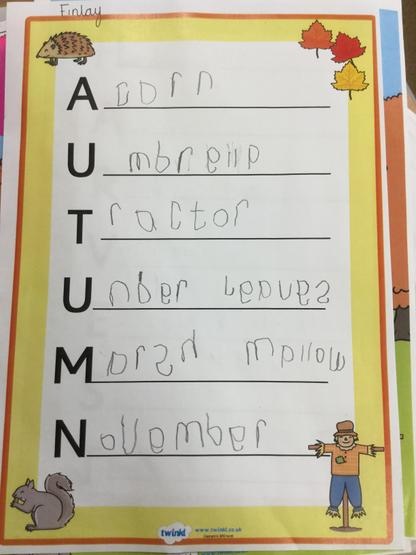 Finlay
Acorn
Umbrella
Tractor
Unber leaves
Marsh mallow
November
twinkl www.twinkl.co.uk